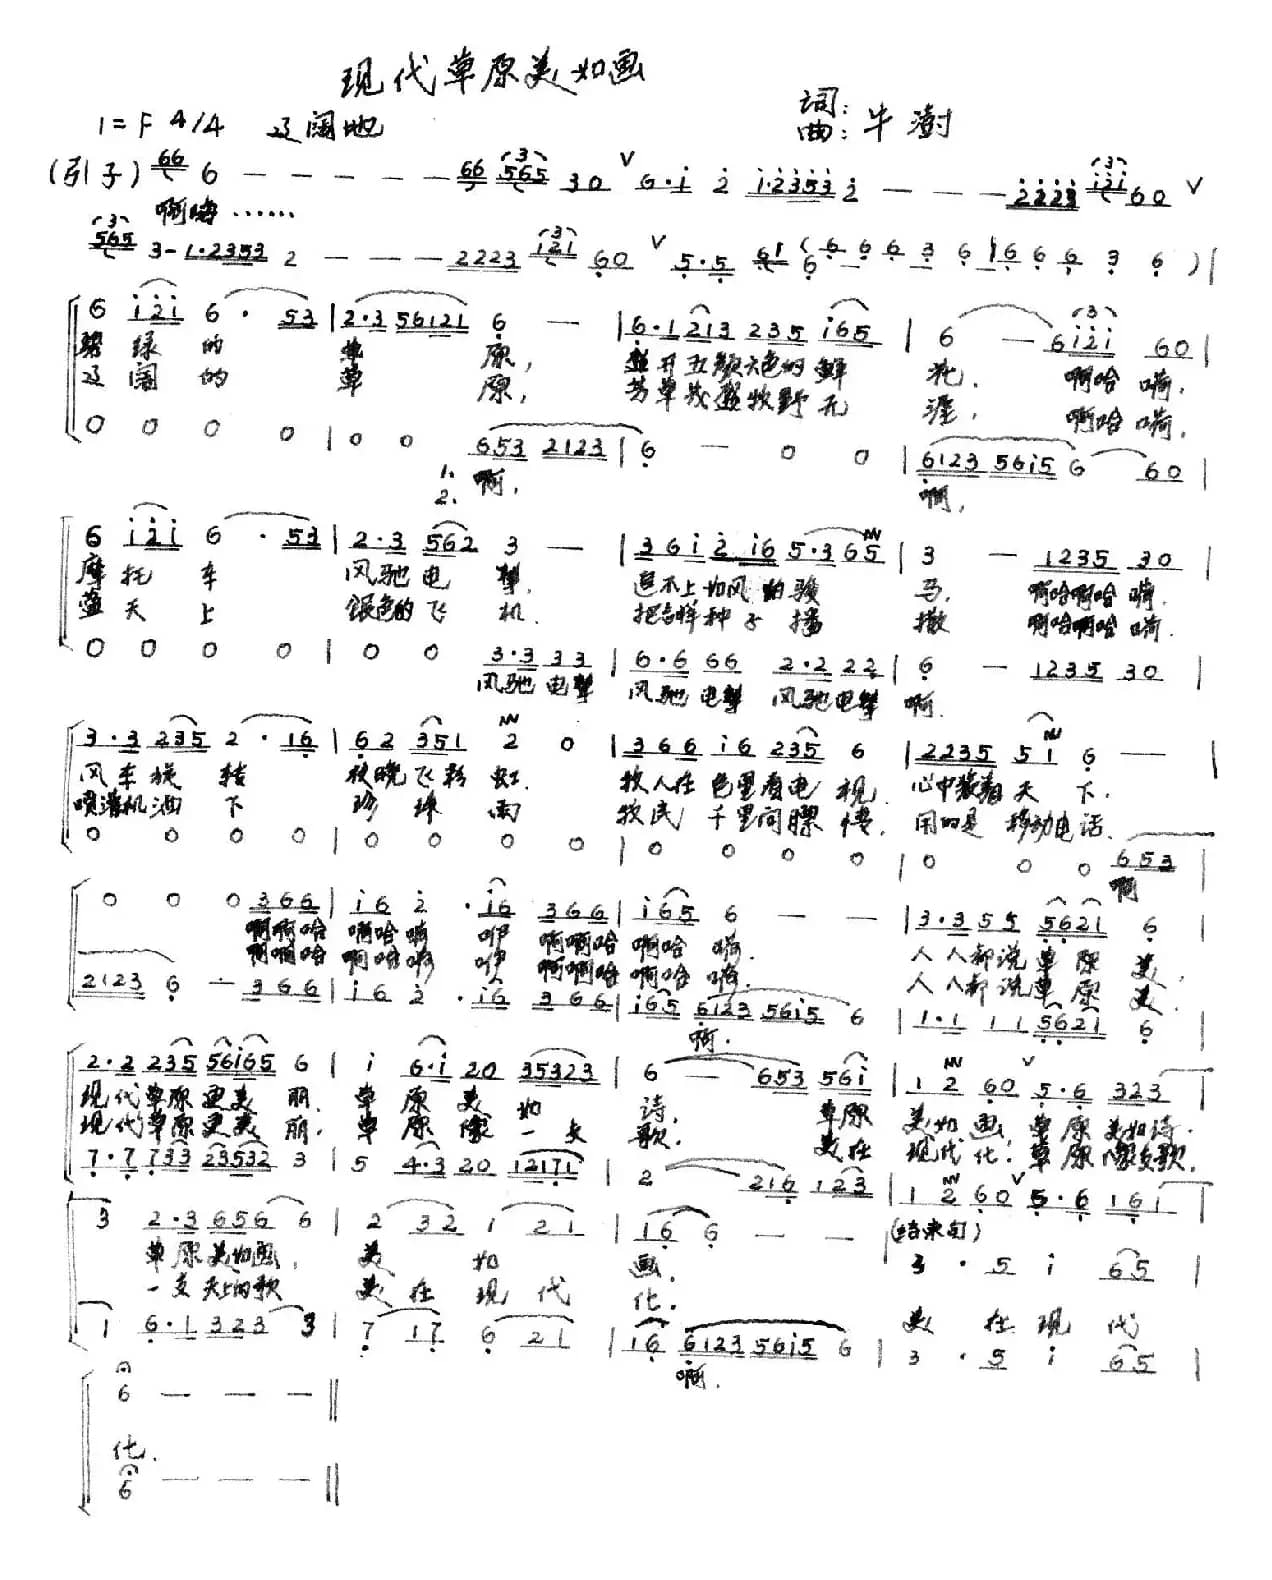 现代草原美如画
1=F 4/4 辽阔地
词:
曲: 牛澍
(引子) 66 6 — — — — — 66 565 30 V 6·i 2 i·2353 2 — — — 2223 i2i 60 V
啊嗨……
565 3— 1·2353 2 — — — 2223 121 60 V 5·5 61 (6 6 6 6 3 6 | 6 6 6 3 6 ) |
6 i2i 6 · 53 | 2·3 56121 6 — | 6·1 213 235 i65 | 6 — 6i2i 60 |
绿的 草 原, 盛开五颜六色的鲜 花. 啊哈 嗬,
辽阔的 草 原, 芳草茂盛牧野无 涯, 啊哈 嗬.
0 0 0 0 | 0 0 653 2123 | 6 — 0 0 | 6123 56i5 6 60 |
1. 2. 啊, 啊,
6 i2i 6 · 53 | 2·3 562 3 — | 36i 2·i6 5·365 | 3 — 1235 30 |
摩托车 风驰电掣. 追不上如风的骏 马. 啊哈啊哈 嗬.
蓝天上 银色的飞机. 把吉祥种子播 撒 啊哈啊哈 嗬.
0 0 0 0 | 0 0 3·3 33 | 6·6 66 2·2 22 | 6 — 1235 30 |
风驰电掣 风驰电掣 风驰电掣 啊.
3·3 235 2 · 16 | 62 351 2 0 | 366 i6 235 6 | 2235 51 6 — |
风车旋转 拂晓飞彩虹. 牧人在 包里看电 视. 心中装着天 下.
喷灌机洒下 珍珠雨 牧民 千里问膘情. 用的是 移动电话.
0 0 0 0 | 0 0 0 0 | 0 0 0 0 | 0 0 0 653 |
啊
0 0 0 366 | i6 2 · i6 366 | i65 6 — — | 3·3 55 5621 6 |
啊啊哈 啊哈嗬 咿 啊啊哈 啊哈 嗬. 人人都说草原 美.
啊啊哈 啊哈嗬 咿 啊啊哈 啊哈 嗬. 人人都说草原 美.
2123 6 — 366 | i6 2 · i6 366 | i65 6123 56i5 6 | 1·1 11 5621 6 |
啊.
2·2 235 56i65 6 | i 6·i 20 35323 | 6 — 653 56i | 1 2 60 V 5·6 323 |
现代草原更美 丽. 草 原 美 如 诗, 草原 美如画, 草原美如诗.
现代草原更美 丽. 草 原 像 一支 歌. 美在 现代化. 草原像支歌,
7·7 733 23532 3 | 5 4·3 20 12171 | 2 — 216 123 | 1 2 60 V 5·6 161 |
(结束句)
3 2·3 656 6 | 2 32 i 21 | 16 6 — — | 3 · 5 i 65 |
草原美如画, 美 如 画.
一支天上的歌 美 在 现 代 化. 美 在 现 代
1 6·1 323 3 | 7 17 6 21 | 16 6123 56i5 6 | 3 · 5 i 65 |
啊.
6 — — — ‖
化.
6 — — — ‖